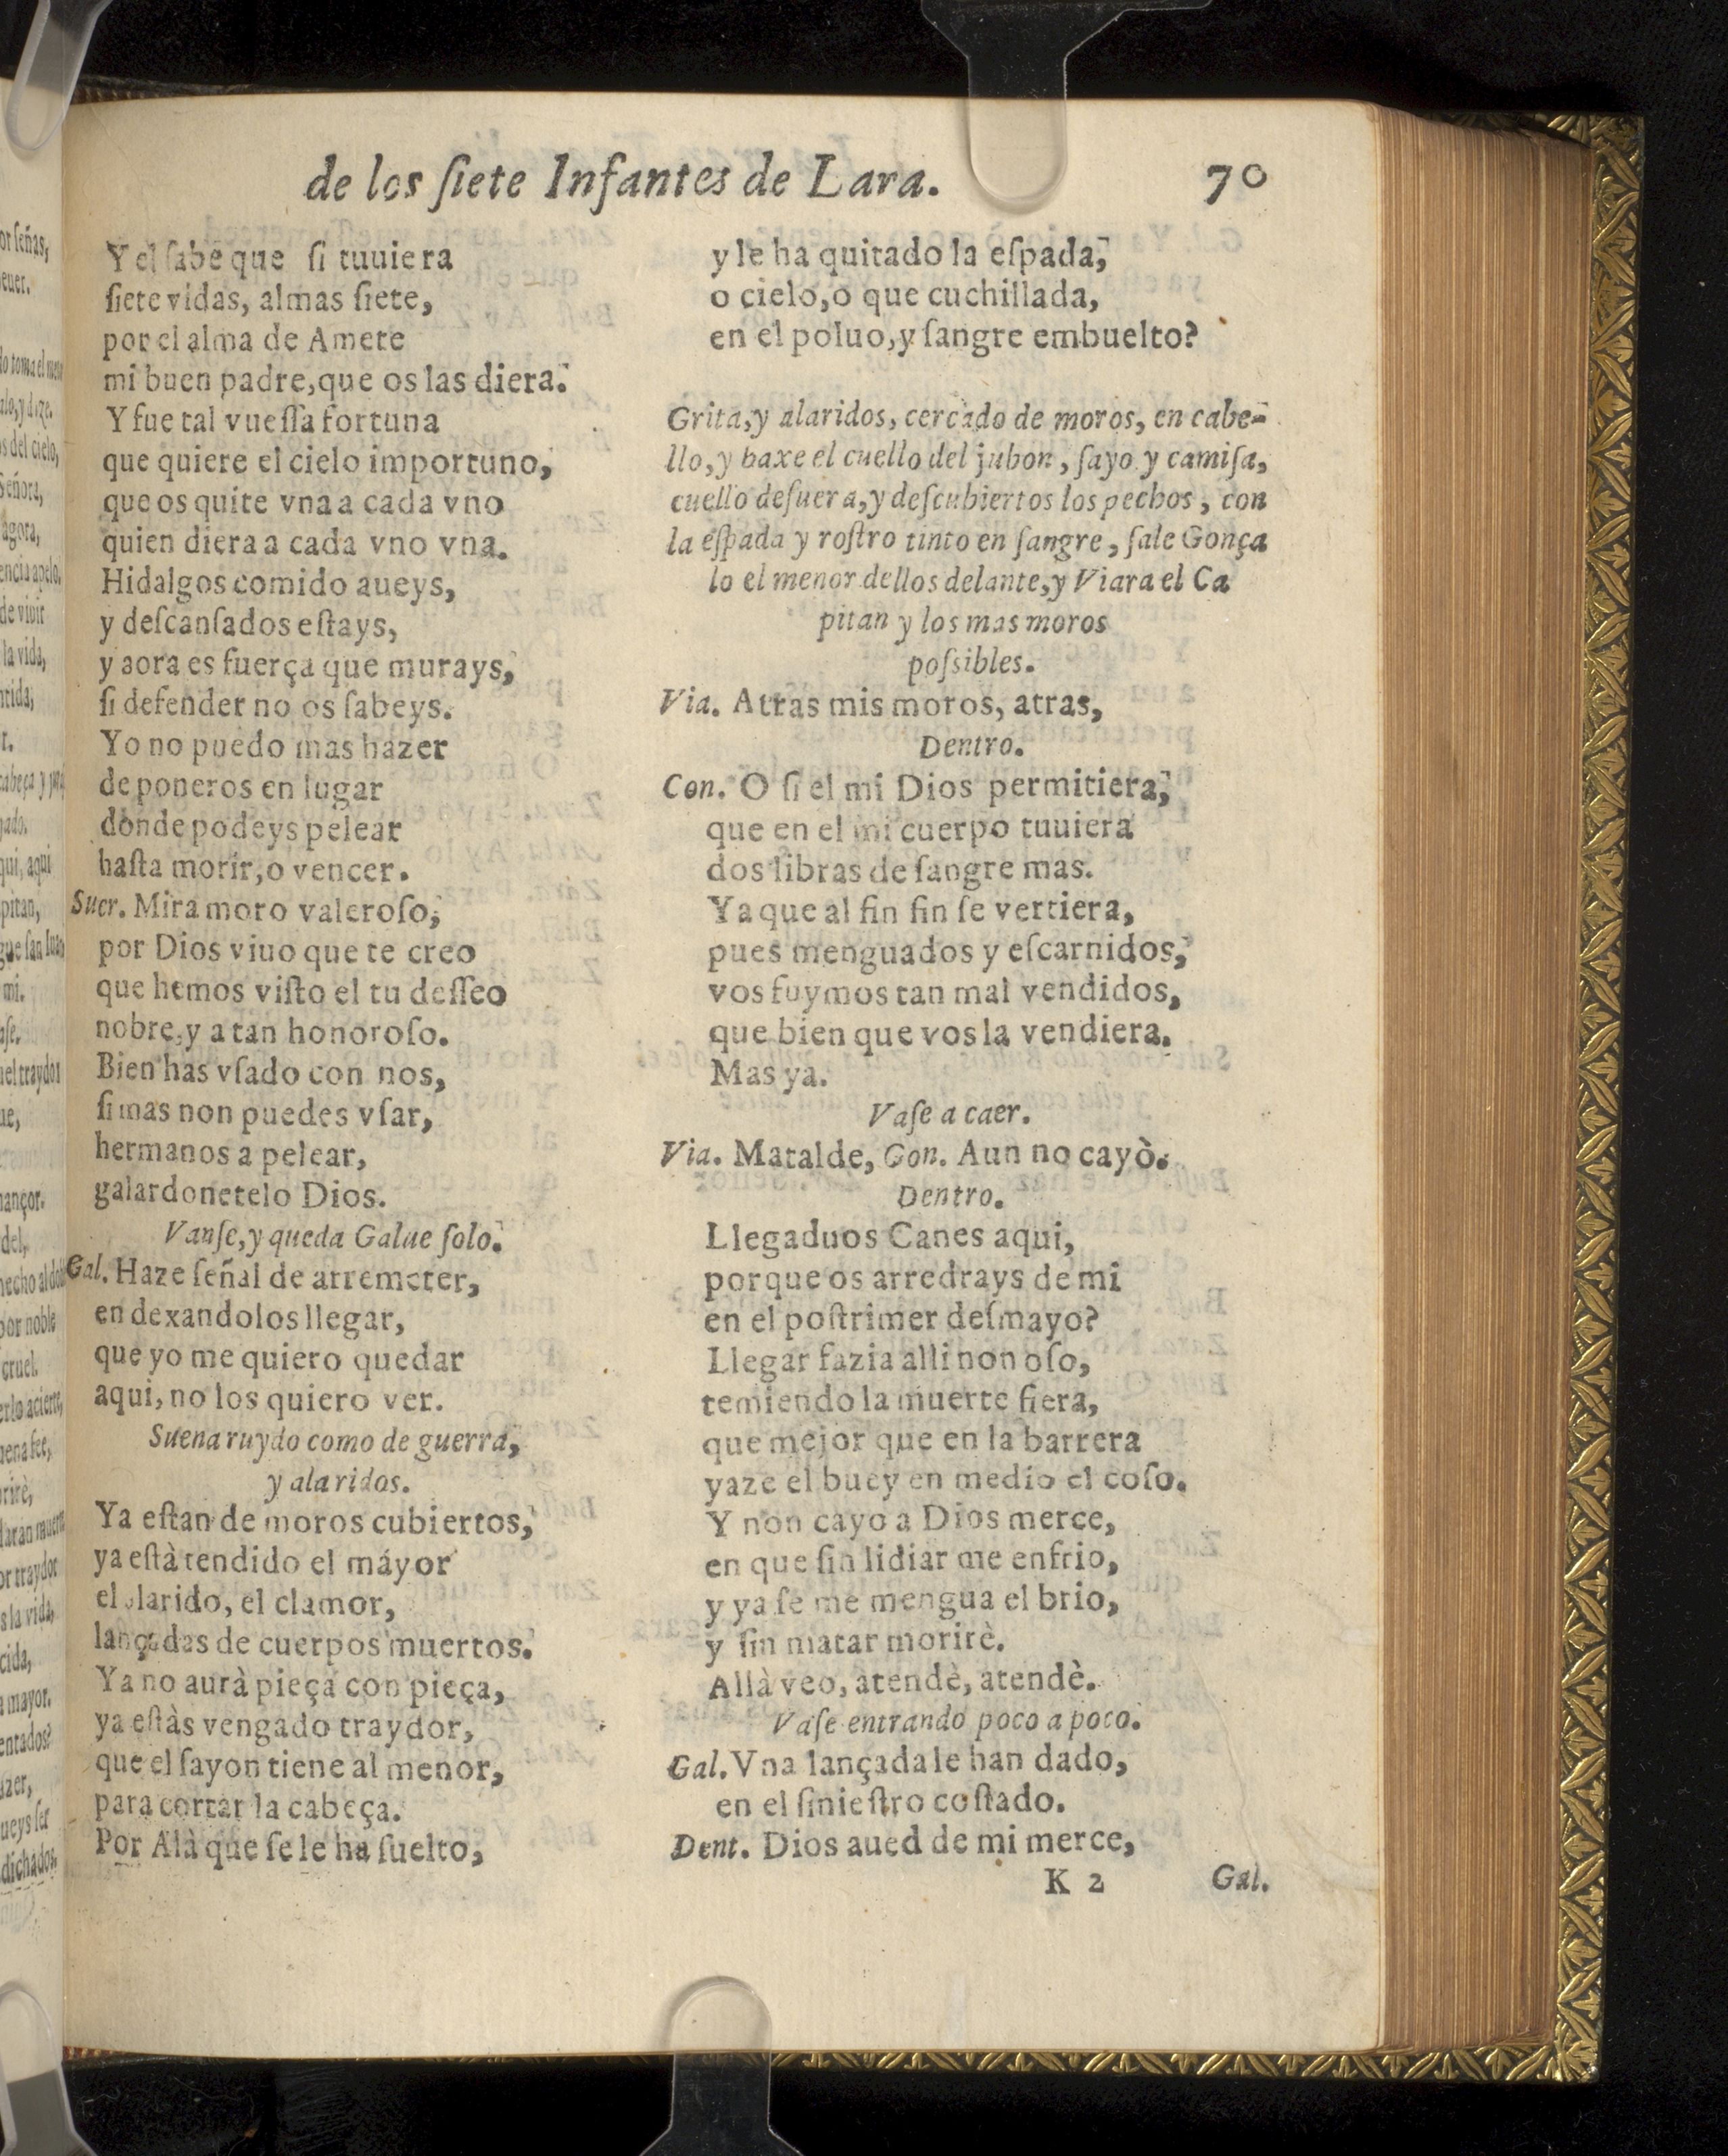 de los ſiete Infantes de Lara. 70
Y el ſabe que ſi tuuiera
ſiete vidas, almas ſiete,
por el alma de Amete
mi buen padre, que os las diera.
Y fue tal vueſſa fortuna
que quiere el cielo importuno,
que os quite vna a cada vno
quien diera a cada vno vna.
Hidalgos comido aueys,
y deſcanſados eſtays,
y aora es fuerça que murays,
ſi defender no os ſabeys.
Yo no puedo mas hazer
de poneros en lugar
donde podeys pelear
haſta morir, o vencer.
Suer. Mira moro valeroſo,
por Dios viuo que te creo
que hemos viſto el tu deſſeo
nobre, y a tan honoroſo.
Bien has vſado con nos,
ſi mas non puedes vſar,
hermanos a pelear,
galardonetelo Dios.
Vanſe, y queda Galue ſolo.
Gal. Haze ſeñal de arremeter,
en dexandolos llegar,
que yo me quiero quedar
aqui, no los quiero ver.
Suena ruydo como de guerra,
y alaridos.
Ya eſtan de moros cubiertos,
ya eſtà tendido el máyor
el alarido, el clamor,
lançadas de cuerpos muertos.
Ya no aurà pieça con pieça,
ya eſtàs vengado traydor,
que el ſayon tiene al menor,
para cortar la cabeça.
Por Alà que ſe le ha ſuelto,
y le ha quitado la eſpada,
o cielo, o que cuchillada,
en el poluo, y ſangre embuelto?
Grita, y alaridos, cercado de moros, en cabe-
llo, y baxe el cuello del jubon, ſayo y camiſa,
cuello deſuera, y deſcubiertos los pechos, con
la eſpada y roſtro tinto en ſangre, ſale Gonça
lo el menor dellos delante, y Viara el Ca
pitan y los mas moros
poſsibles.
Via. Atras mis moros, atras,
Dentro.
Con. O ſi el mi Dios permitiera,
que en el mi cuerpo tuuiera
dos libras de ſangre mas.
Ya que al fin fin ſe vertiera,
pues menguados y eſcarnidos,
vos fuymos tan mal vendidos,
que bien que vos la vendiera.
Mas ya.
Vaſe a caer.
Via. Matalde, Gon. Aun no cayò.
Dentro.
Llegaduos Canes aqui,
porque os arredrays de mi
en el poſtrimer deſmayo?
Llegar fazia alli non oſo,
temiendo la muerte fiera,
que mejor que en la barrera
yaze el buey en medio el coſo.
Y non cayo a Dios merce,
en que ſin lidiar me enfrio,
y ya ſe me mengua el brio,
y ſin matar morirè.
Allà veo, atendè, atendè.
Vaſe entrando poco a poco.
Gal. Vna lançada le han dado,
en el ſinieſtro coſtado.
Dent. Dios aued de mi merce,
K 2 Gal.